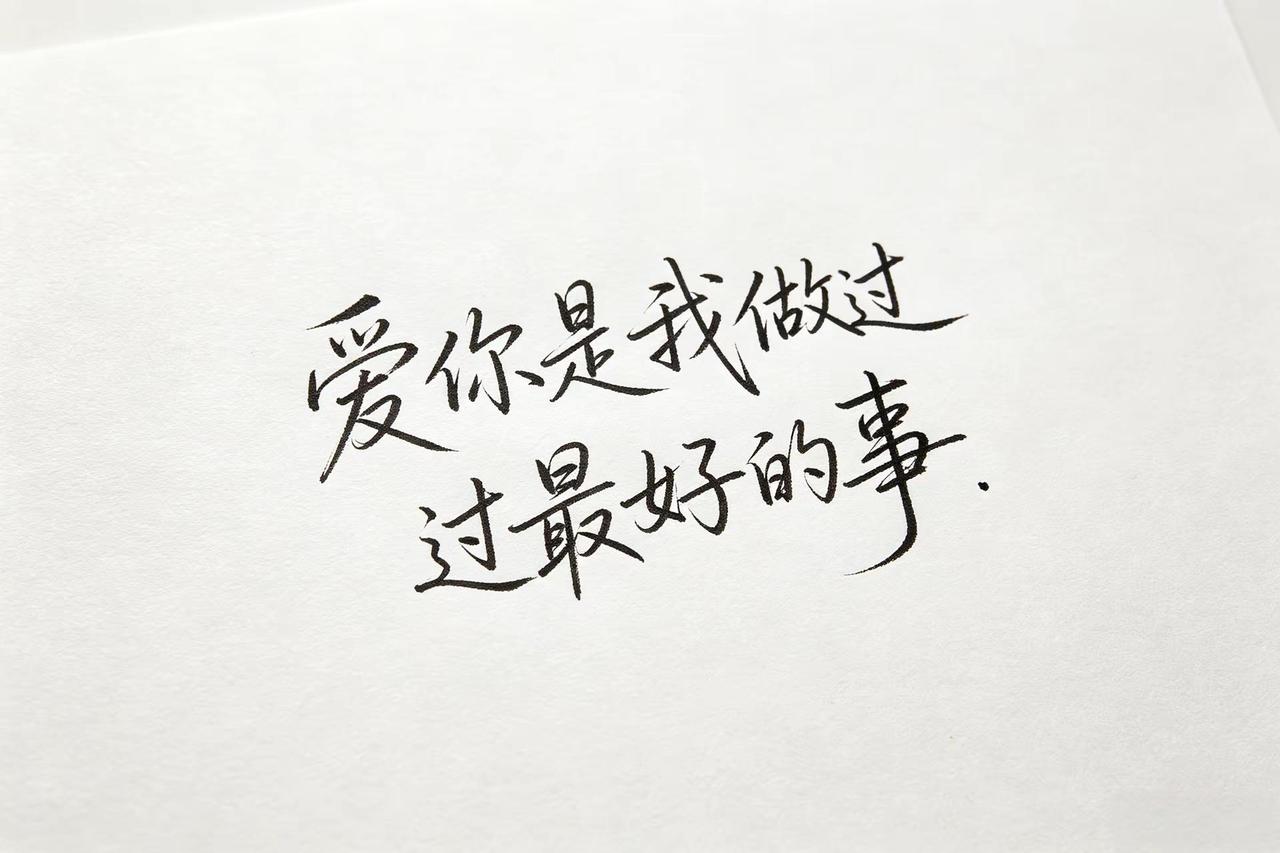 爱你是我做过
过最好的事.